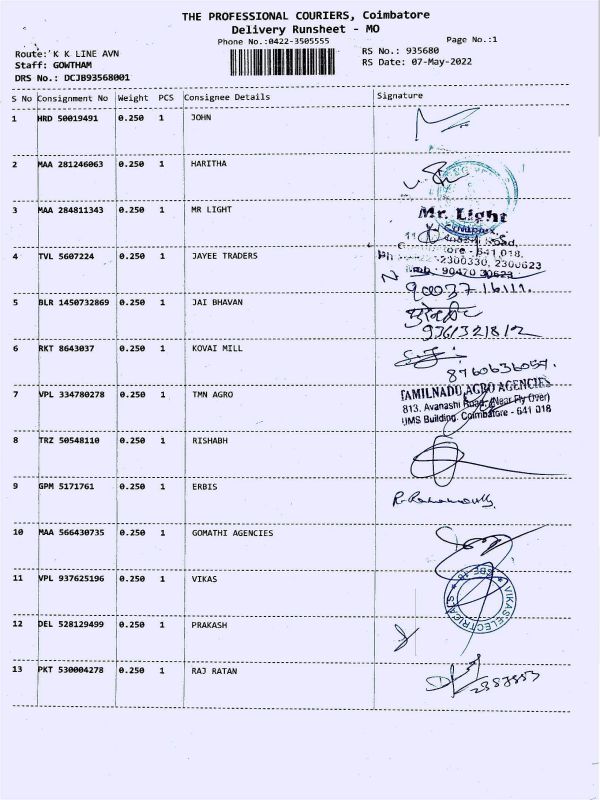 THE PROFESSIONAL COURIERS, Coimbatore
Delivery Runsheet - MO
Phone No.:0422-3505555
Page No.:1
Route: K K LINE AVN
RS No.: 935680
Staff: GOWTHAM
RS Date: 07-May-2022
DRS No.: DCJB93568001
S No Consignment No Weight PCS Consignee Details Signature
1 HRD 50019491 0.250 1 JOHN
2 MAA 281246063 0.250 1 HARITHA
3 MAA 284811343 0.250 1 MR LIGHT
Mr. Light
Road,
641 018.
4 TVL 5607224 0.250 1 JAYEE TRADERS
Ph 2300330, 2300623
90470 30623
5 BLR 1450732869 0.250 1 JAI BHAVAN
9361321812
6 RKT 8643037 0.250 1 KOVAI MILL
8760636057.
7 VPL 334780278 0.250 1 TMN AGRO
TAMILNADU AGRO AGENCIES
813, Avanashi Road, (Near Fly Over)
UMS Building, Coimbatore - 641 018
8 TRZ 50548110 0.250 1 RISHABH
9 GPM 5171761 0.250 1 ERBIS
10 MAA 566430735 0.250 1 GOMATHI AGENCIES
11 VPL 937625196 0.250 1 VIKAS
VIKAS ELECTRICALS
12 DEL 528129499 0.250 1 PRAKASH
13 PKT 530004278 0.250 1 RAJ RATAN